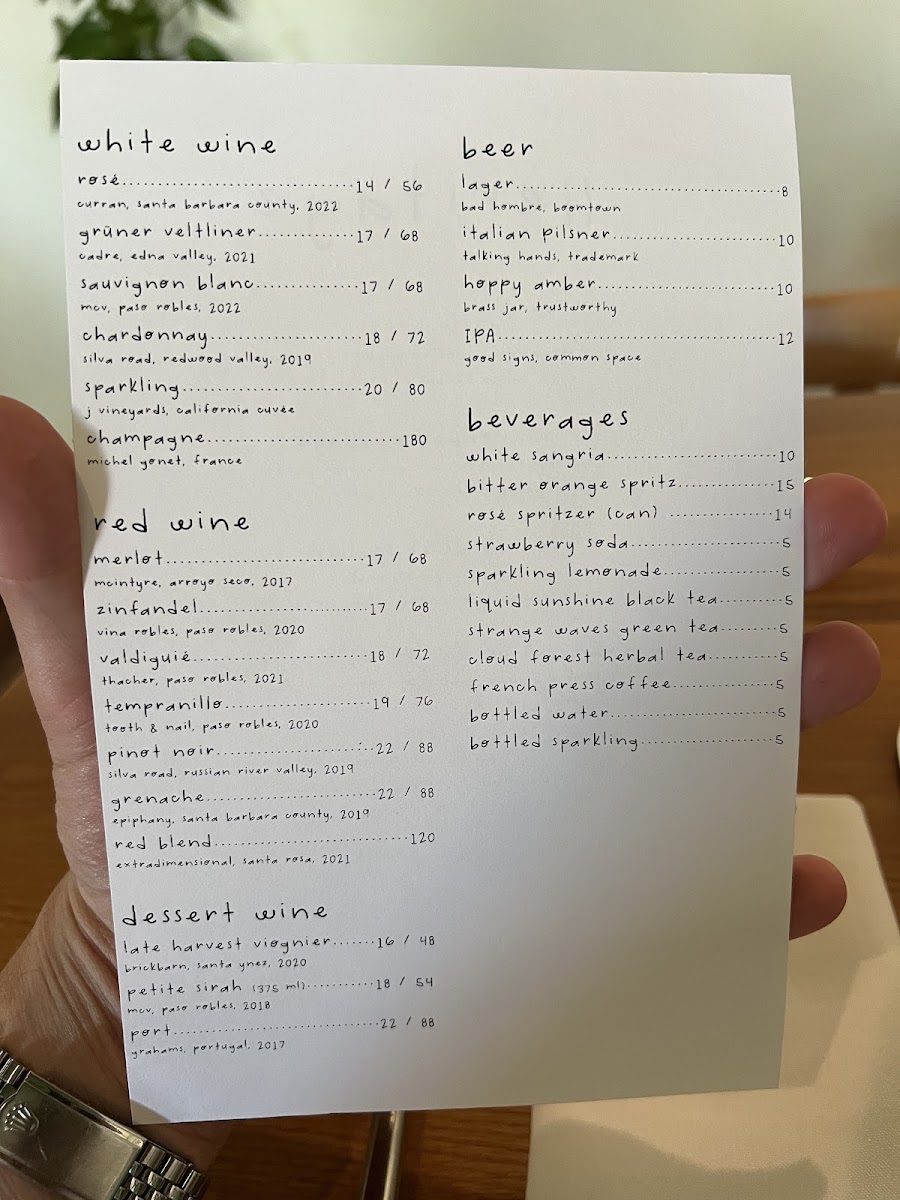 white wine
rosé..................................14 / 56
curran, santa barbara county, 2022
grüner veltliner..............17 / 68
cadre, edna valley, 2021
sauvignon blanc...............17 / 68
mcv, paso robles, 2022
chardonnay.......................18 / 72
silva road, redwood valley, 2019
sparkling..........................20 / 80
j vineyards, california cuvée
champagne............................180
michel gonet, france
red wine
merlot.............................17 / 68
mcintyre, arroyo seco, 2017
zinfandel........................17 / 68
vina robles, paso robles, 2020
valdiguié.........................18 / 72
thacher, paso robles, 2021
tempranillo......................19 / 76
tooth & nail, paso robles, 2020
pinot noir.......................22 / 88
silva road, russian river valley, 2019
grenache.........................22 / 88
epiphany, santa barbara county, 2019
red blend............................120
extradimensional, santa rosa, 2021
dessert wine
late harvest viognier.......16 / 48
brickbarn, santa ynez, 2020
petite sirah (375 ml)...........18 / 54
mcv, paso robles, 2018
port..............................22 / 88
grahams, portugal, 2017
beer
lager.......................................8
bad hombre, boomtown
italian pilsner.........................10
talking hands, trademark
hoppy amber...........................10
brass jar, trustworthy
IPA.........................................12
good signs, common space
beverages
white sangria.........................10
bitter orange spritz...............15
rosé spritzer (can) ................14
strawberry soda......................5
sparkling lemonade.................5
liquid sunshine black tea..........5
strange waves green tea.........5
cloud forest herbal tea...........5
french press coffee................5
bottled water.........................5
bottled sparkling....................5